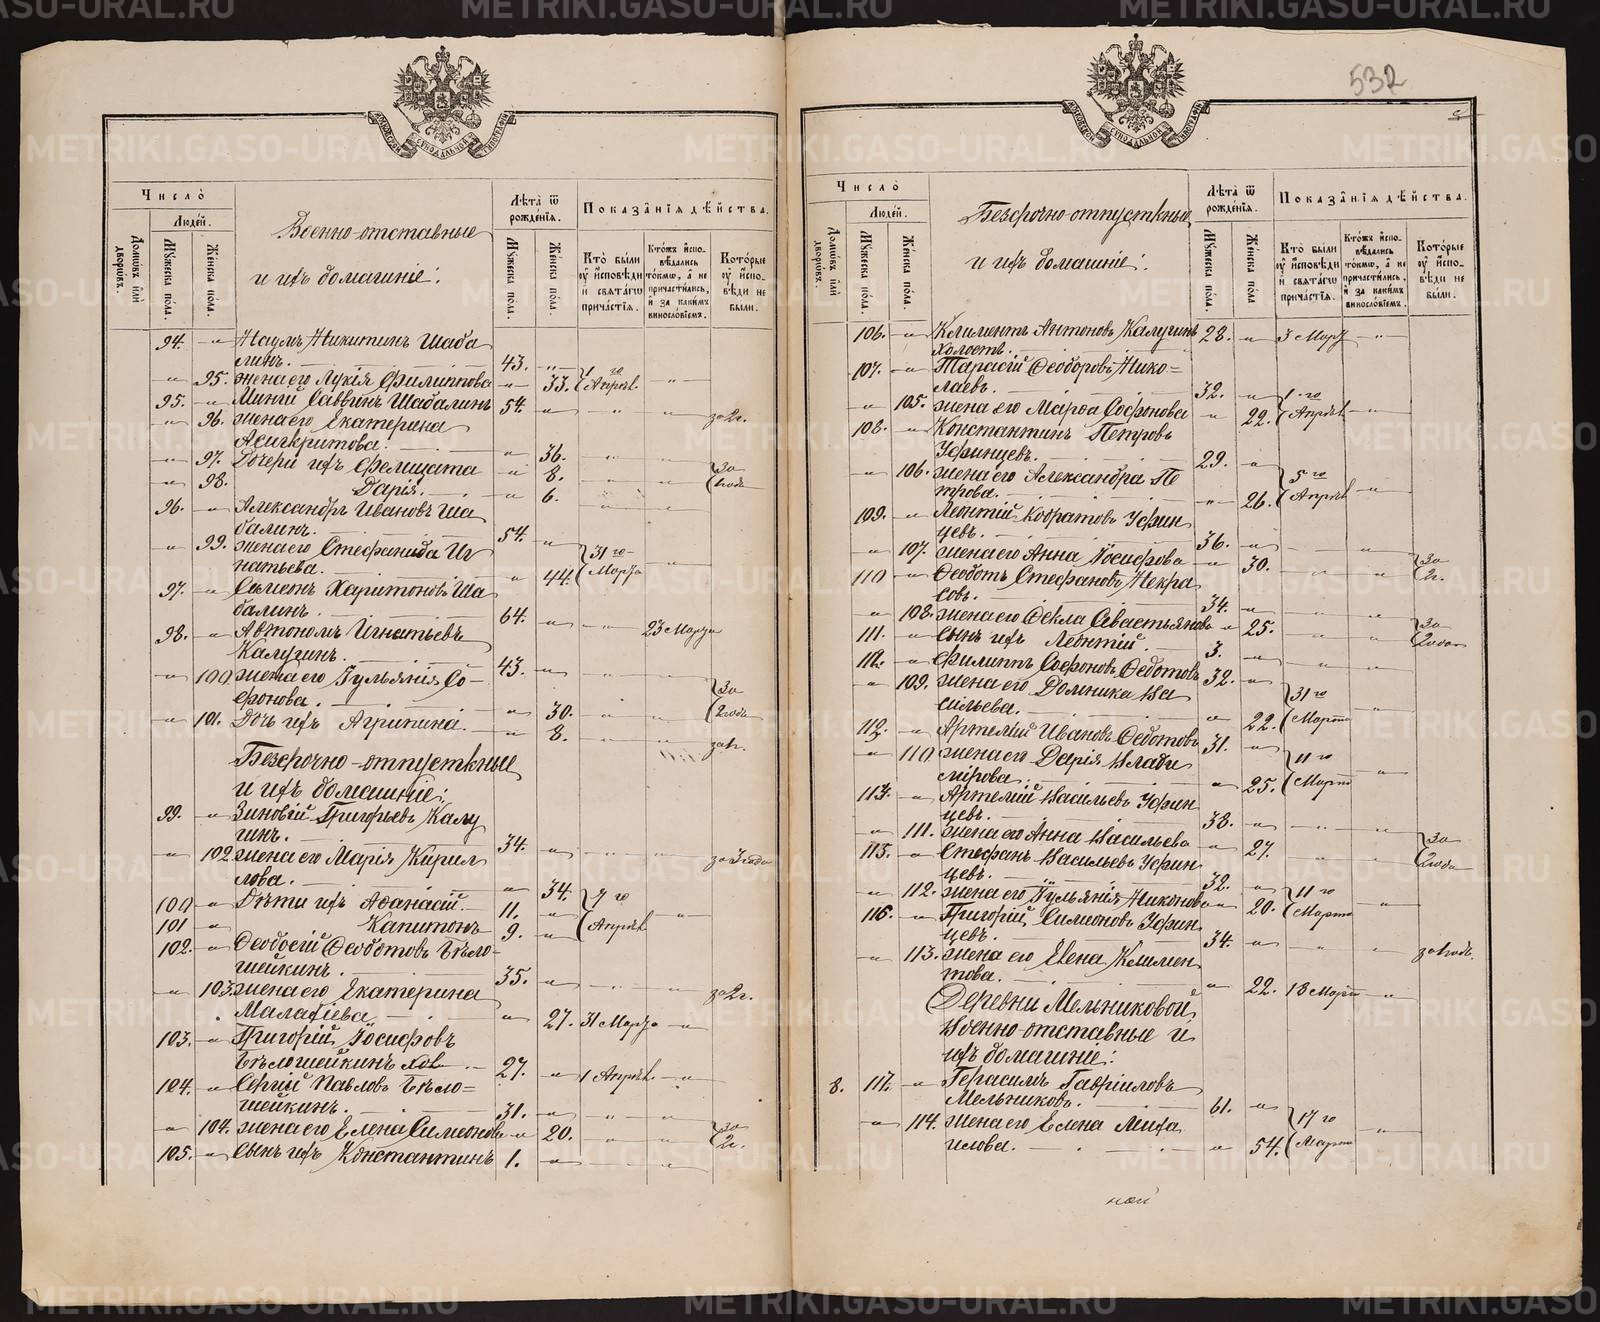 METRIKI.GASO-URAL.RU
532
Число̀
Людей.
Домовъ или дворовъ.
Мужеска пола.
Женска пола.
Военно-отставные
и ихъ домашніе:
Лѣта ѿ рожденія.
Мужеска пола.
Женска пола.
Показанія дѣйства.
Кто были у исповѣди и святагѡ причастія.
Ктожъ исповѣдались токмо, а не причастились, и за какимъ винословіемъ.
Которые у исповѣди не были.
94. Наумъ Никитинъ Шабалинъ. 43.
95. жена его Лукія Филиппова 33. Апрѣл.
95. Миній Саввинъ Шабалинъ 54. за 2 г.
96. жена его Екатерина
Асигкритова. 36.
97. Дочери ихъ Фелицата 8. за
98. Дарія. 6.
96. Александръ Ивановъ Шабалинъ. 54.
99. жена его Стефанида Игнатьева. 44. 31 го Марта
97. Симеонъ Харитоновъ Шабалинъ. 64. 23 Марта
98. Автономъ Игнатьевъ
Калугинъ. 43.
100 жена его Іульянія Софронова. 30. за 2 года
101. Дочь ихъ Агрипина. 8. за 1 г.
Безсрочно-отпускные
и ихъ домашніе:
99. Зиновій Григорьевъ Калугинъ. 34.
102 жена его Марія Кирилова. 34. за 3 года
100 Дѣти ихъ Аѳанасій. 11. 7 го
101 Капитонъ 9. Апрѣл.
102. Ѳеодосій Ѳедотовъ Бѣлошейкинъ. 35.
103. жена его Екатерина
Малаѳіева 27. 31 Марта за 2 г.
103. Григорій Іосифовъ
Бѣлошейкинъ хол. 27. 1 Апрѣл.
104. Сергій Павловъ Бѣлошейкинъ. 31.
104. жена его Елена Симеонова 20. за 2 г.
105. Сынъ ихъ Константинъ 1.
Число̀
Людей.
Домовъ или дворовъ.
Мужеска пола.
Женска пола.
Безсрочно-отпускные
и ихъ домашніе:
Лѣта ѿ рожденія.
Мужеска пола.
Женска пола.
Показанія дѣйства.
Кто были у исповѣди и святагѡ причастія.
Ктожъ исповѣдались токмо, а не причастились, и за какимъ винословіемъ.
Которые у исповѣди не были.
106. Климентъ Антоновъ Калугинъ 28. 3 Март
холостъ.
107. Тарасій Ѳеодоровъ Николаевъ. 32. 1-го
105. жена его Марѳа Софонова 22. Апрѣл.
108. Константинъ Петровъ
Уфинцевъ. 29. 5 го
106. жена его Александра Петрова. 26. Апрѣл.
109. Леонтій Кодратовъ Уфинцевъ. 36.
107. жена его Анна Іосифова 30. за 2 г.
110 Ѳедотъ Стефановъ Некрасовъ. 34.
108. жена его Ѳекла Севастьянова 25. за
111. Сынъ ихъ Леонтій. 3. 2 года
112. Филиппъ Софоновъ Ѳедотовъ 32. 31 го
109. жена его Домника Васильева. 22. Марта
112. Артемій Ивановъ Ѳедотовъ 31. 11 го
110 жена его Дарія Владимірова. 25. Март
113. Артемій Васильевъ Уфинцевъ. 38.
111. жена его Анна Васильева 27. за 2 года
115. Стефанъ Васильевъ Уфинцевъ. 32. 11 го
112. жена его Іульянія Никонова 20. Марта
116. Григорій Симеоновъ Уфинцевъ. 34.
113. жена его Елена Климентова. 22. 18 Март
Деревни Мельниковой
Военно-отставные и
ихъ домашніе:
8. 117. Герасимъ Гавріиловъ
Мельниковъ. 61. 17 го
114. жена его Елена Михаилова. 54. Марта